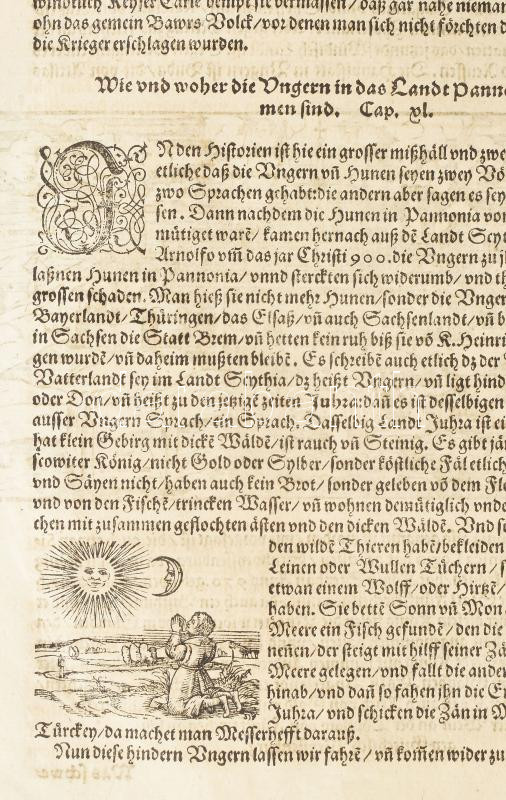 ohn das gemein Bawrs Volck/vor denen man sich nicht förchten d
die Krieger erschlagen wurden.
Wie vnd woher die Vngern in das Landt Panno
men sind. Cap. xl.
IN den Historien ist hie ein grosser mißhäll vnd zwe
etliche daß die Vngern vñ Hunen seyen zwey Vö
zwo Sprachen gehabt:die andern aber sagen es sey
sen. Dann nachdem die Hunen in Pannonia vor
mütiget warẽ/ kamen hernach auß dẽ Landt Scyt
Arnolfo vm̃ das jar Christi 900.die Vngern zu j
laßnen Hunen in Pannonia/ vnnd sterckten sich widerumb/ vnd th
grossen schaden. Man hieß sie nicht mehr Hunen/sonder die Vnger
Bayerlandt/Thüringen/das Elsaß/vñ auch Sachsenlandt/vñ b
in Sachsen die Statt Brem/vñ hetten kein ruh biß sie võ K.Heinri
gen wurdẽ/vñ daheim mußten bleibẽ. Es schreibẽ auch etlich dz der
Vatterlandt sey im Landt Scythia/dz heißt Vngern/vñ ligt hind
oder Don/vñ heißt zu den jetzigẽ zeiten Juhra:dañ es ist desselbigen
ausser Vngern Sprach/ein Sprach. Dasselbig Landt Juhra ist ei
hat klein Gebirg mit dickẽ Wäldẽ/ist rauch vñ Steinig. Es gibt jä
scowiter König/nicht Gold oder Sylber/sonder köstliche Fäl etlich
vnd Säyen nicht/haben auch kein Brot/sonder geleben võ dem Fle
vnd von den Fischẽ/trincken Wasser/vñ wohnen demütiglich vnde
chen mit zusammen geflochten ästen vnd den dicken Wäldẽ. Vnd s
den wildẽ Thieren habẽ/bekleiden
Leinen oder Wullen Tüchern/s
etwan einem Wolff/oder Hirtzẽ/
haben. Sie bettẽ Sonn vñ Mon
Meere ein Fisch gefundẽ/den die
neñen/der steigt mit hilff seiner Zä
Meere gelegen/vnd fallt die ander
hinab/vnd dañ so fahen jhn die E
Juhra/ vnd schicken die Zän in M
Türckey/da machet man Messerhefft darauß.
Nun diese hindern Vngern lassen wir fahrẽ/vñ kom̃en wider zu